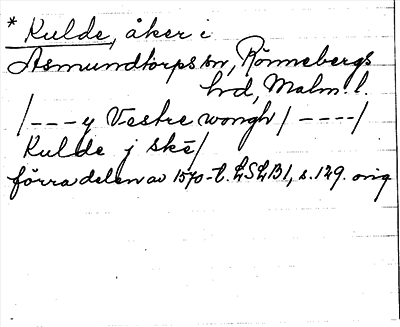 * Kulde, åker i
Asmundtorps sn, Rönnebergs
hd, Malm. l.
/---y Vestre wongh/----/
Kulde j ské/
förra delen av 1570-t. LSLB1, s. 129. orig